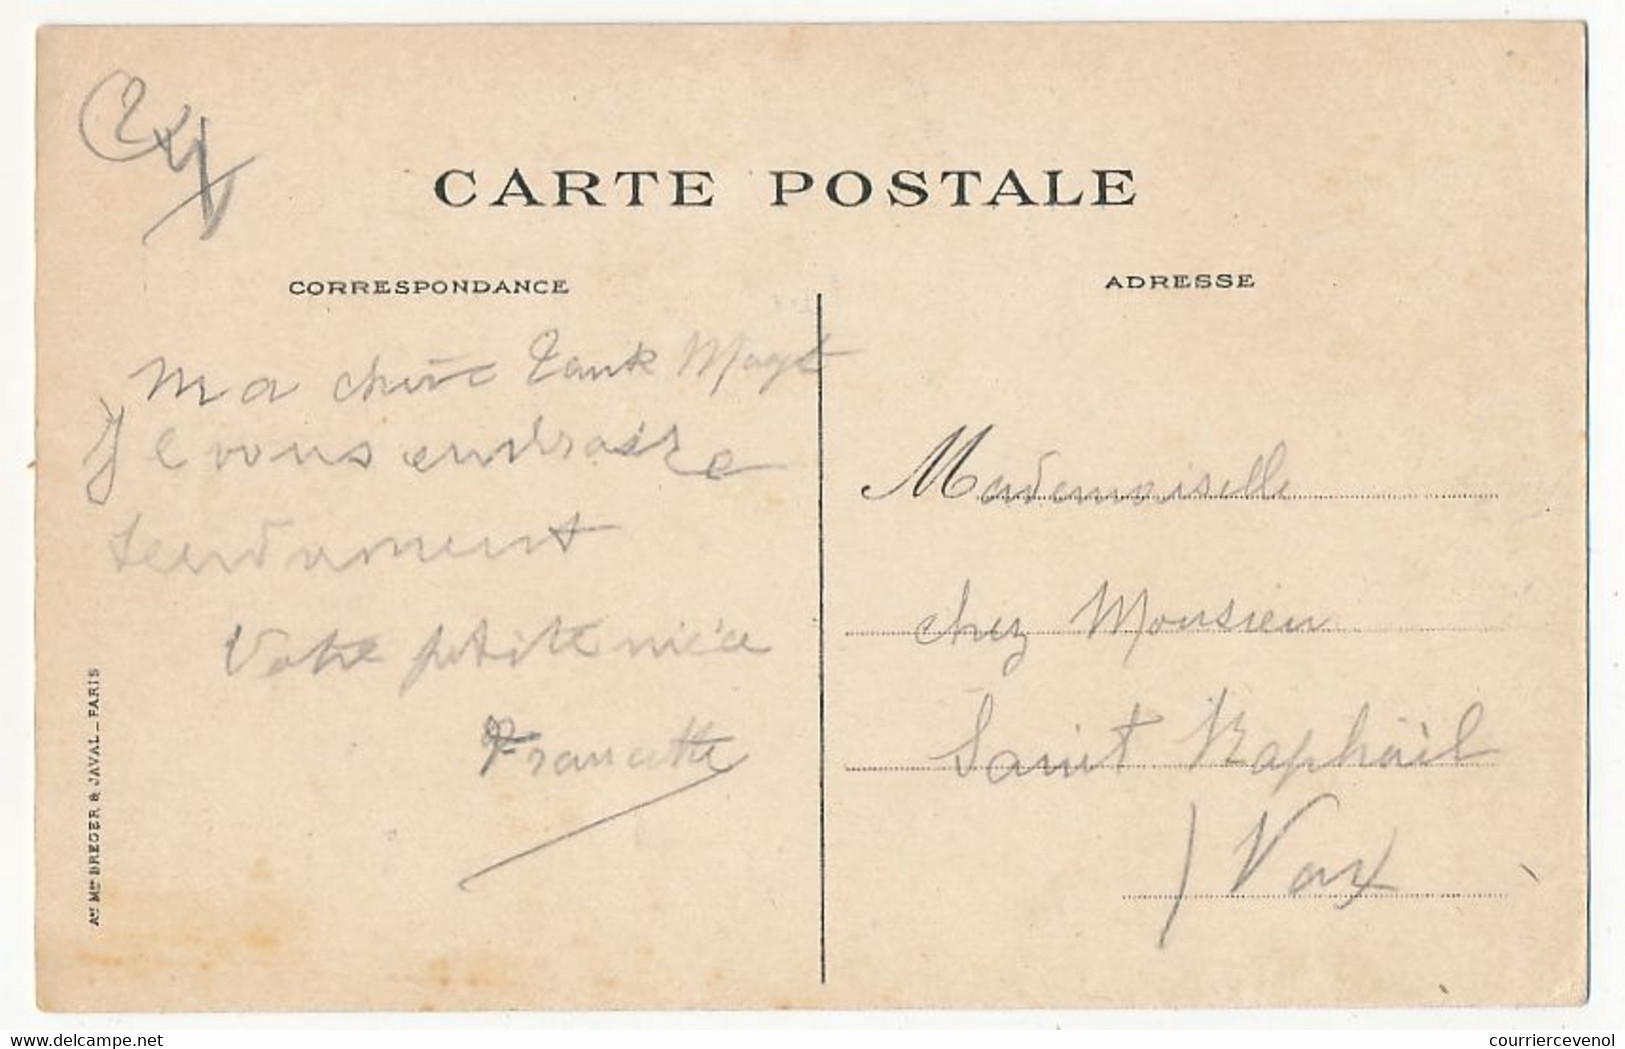 24
CARTE POSTALE
CORRESPONDANCE
ADRESSE
Ma chère Tante Magt
Je vous embrasse
tendrement
Votre petite nièce
Francette
Mademoiselle
chez Monsieur
Saint Raphaël
Var
Ane Mon BREGER & JAVAL _ PARIS
www.delcampe.net
courriercevenol